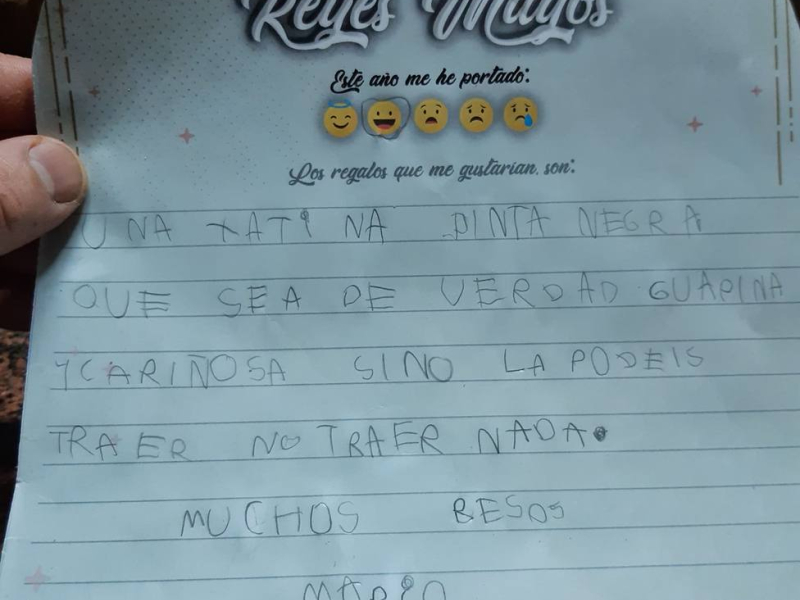 Reyes Magos
Este año me he portado:
Los regalos que me gustarían, son:
UNA XATINA PINTA NEGRA
QUE SEA DE VERDAD GUAPINA
Y CARIÑOSA SINO LA PODEIS
TRAER NO TRAER NADA.
MUCHOS BESOS
MARIO